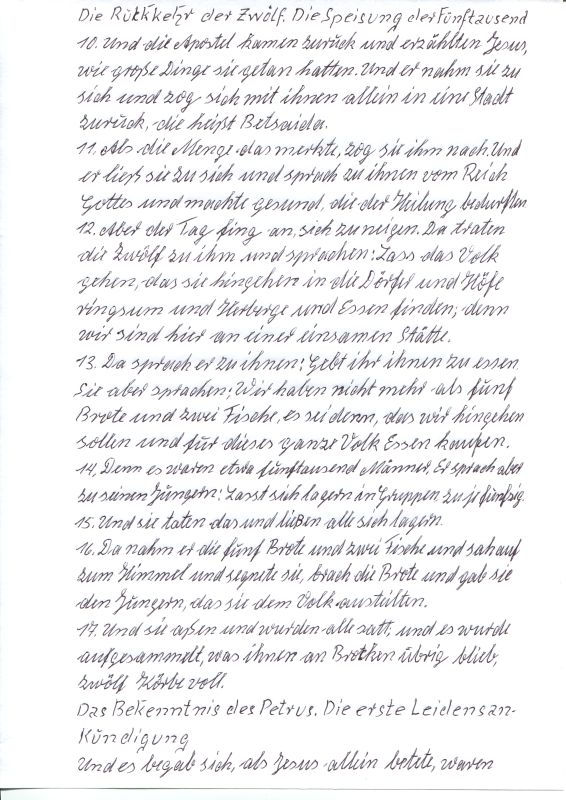 Die Rükkehr der Zwölf. Die Speisung der Fünftausend
10. Und die Apostel kamen zurück und erzählten Jesus,
wie große Dinge sie getan hatten. Und er nahm sie zu
sich und zog sich mit ihnen allein in eine Stadt
zurück, die heißt Betsaida.
11. Als die Menge das merkte, zog sie ihm nach. Und
er ließ sie zu sich und sprach zu ihnen vom Reich
Gottes und machte gesund, die der Heilung bedurften
12. Aber der Tag fing an, sich zu neigen. Da traten
die Zwölf zu ihm und sprachen: Lass das Volk
gehen, das sie hingehen in die Dörfer und Höfe
ringsum und Herberge und Essen finden; denn
wir sind hier an einer einsamen Stätte.
13. Da sprach er zu ihnen: Gebt ihr ihnen zu essen.
Sie aber sprachen: Wir haben nicht mehr als fünf
Brote und zwei Fische, es sei denn, das wir hingehen
sollen und für dieses ganze Volk Essen kaufen.
14. Denn es waren etwa fünftausend Männer. Er sprach aber
zu seinen Jüngern: Lasst sich lagern in Gruppen zu je fünfzig.
15. Und sie taten das und ließen alle sich lagern.
16. Da nahm er die fünf Brote und zwei Fische und sah auf
zum Himmel und segnete sie, brach die Brote und gab sie
den Jüngern, das sie dem Volk austeilten.
17. Und sie aßen und wurden alle satt; und es wurde
aufgesammelt, was ihnen an Brocken übrig blieb,
zwölf Körbe voll.
Das Bekenntnis des Petrus. Die erste Leidensan-
kündigung
Und es begab sich, als Jesus allein betete, waren